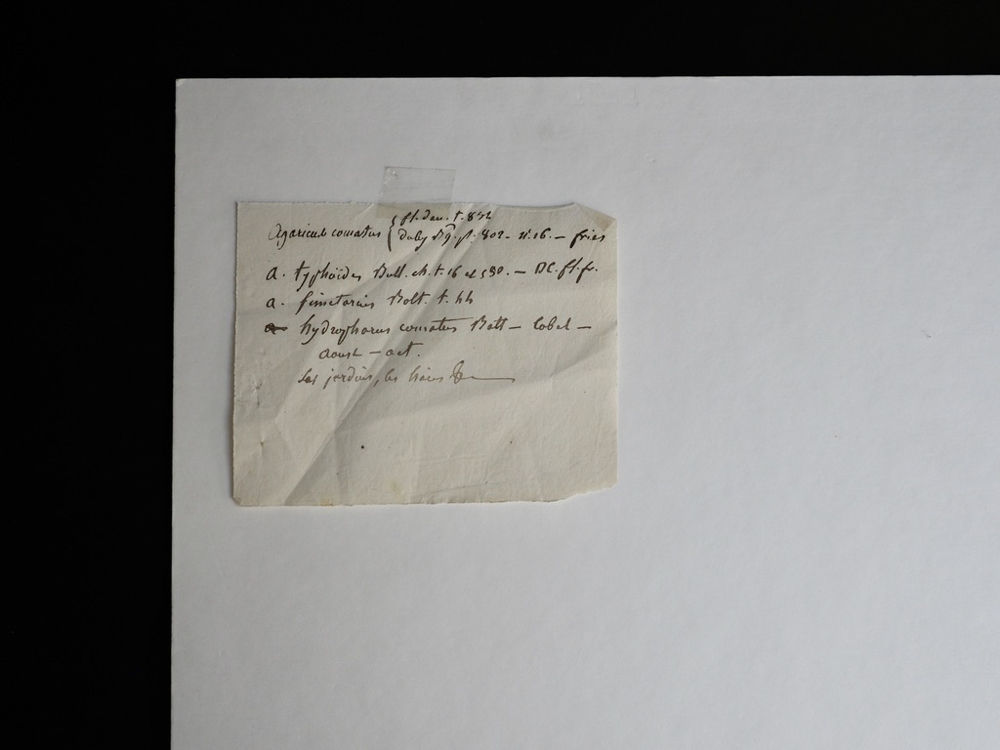 Agaricus comatus { fl. dan. t. 834
duby Bg. p. 802 - n. 16. - fries
a. typhoïdes Bull. ch. t. 16 et 580. - DC. fl. fr.
a. fimetarius Bolt. t. 44
hydrophorus comatus Batt - lobel -
aoust - oct.
les jardins, les